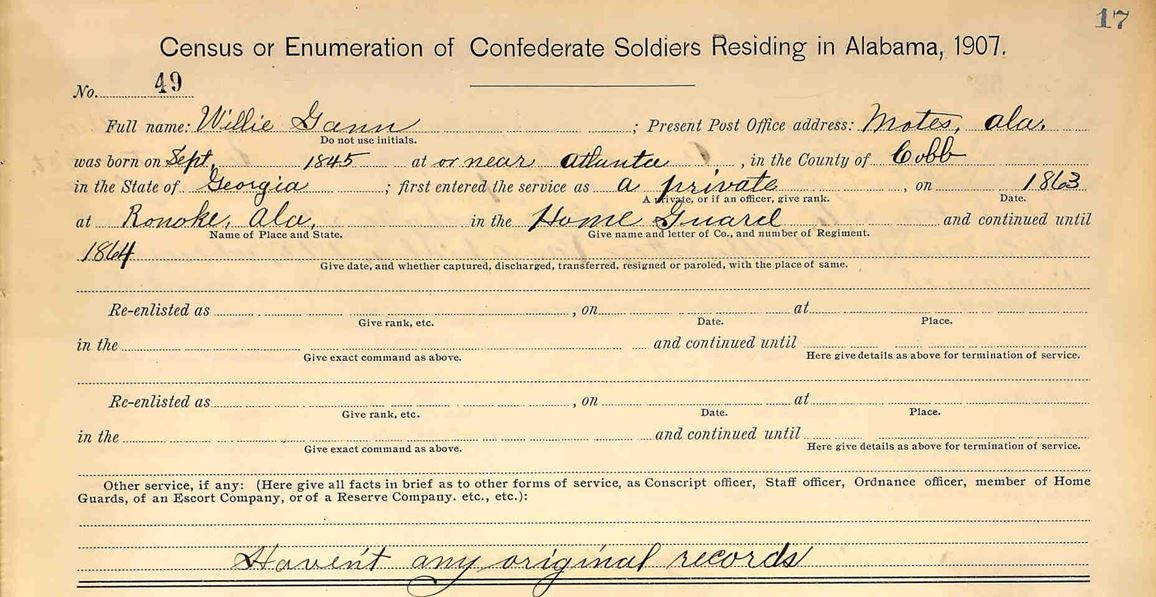 17
Census or Enumeration of Confederate Soldiers Residing in Alabama, 1907.
No. 49
Full name: Willie Gann ; Present Post Office address: Motes, Ala.
Do not use initials.
was born on Sept, 1845 at or near Atlanta , in the County of Cobb
in the State of Georgia ; first entered the service as a private , on 1863
A private, or if an officer, give rank. Date.
at Ronoke, Ala, in the Home Guard and continued until
Name of Place and State. Give name and letter of Co., and number of Regiment.
1864
Give date, and whether captured, discharged, transferred, resigned or paroled, with the place of same.
Re-enlisted as , on at
Give rank, etc. Date. Place.
in the and continued until
Give exact command as above. Here give details as above for termination of service.
Re-enlisted as , on at
Give rank, etc. Date. Place.
in the and continued until
Give exact command as above. Here give details as above for termination of service.
Other service, if any: (Here give all facts in brief as to other forms of service, as Conscript officer, Staff officer, Ordnance officer, member of Home
Guards, of an Escort Company, or of a Reserve Company. etc., etc.):
Haven't any original records